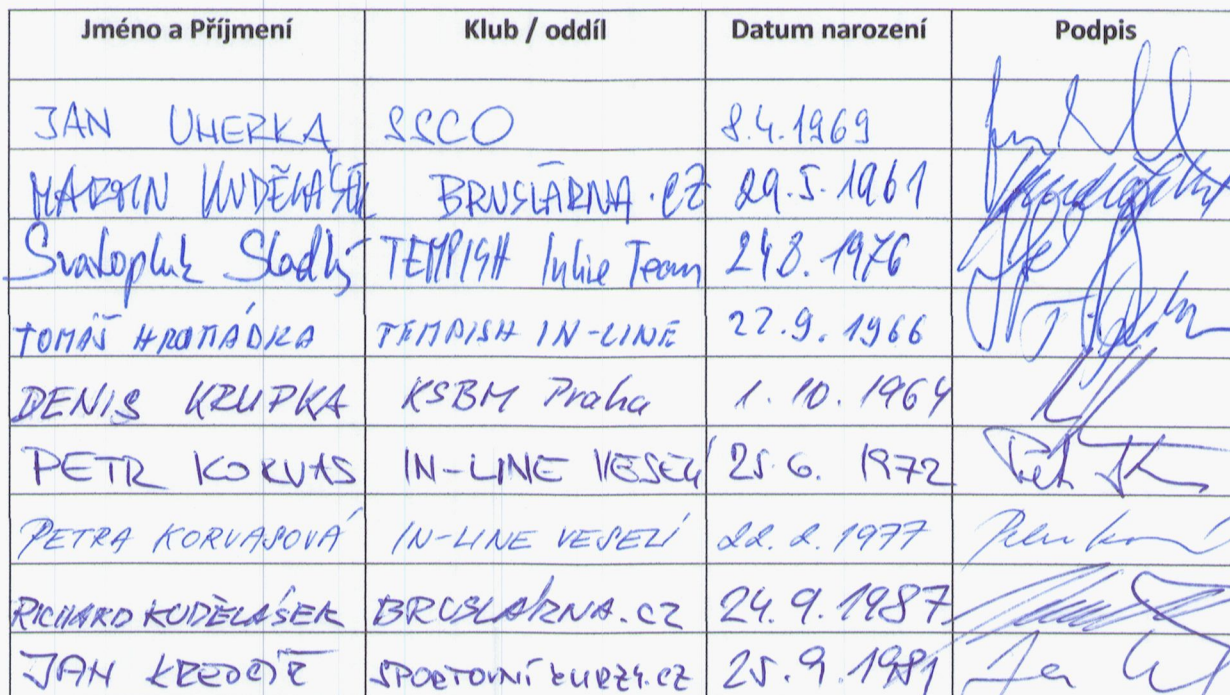 Jméno a Příjmení Klub / oddíl Datum narození Podpis
JAN UHERKA SSCO 8.4.1969
MARTIN KUDĚLÁSEK BRUSLÁRNA.CZ 29.5.1961
Svatopluk Sladký TEMPISH Inline Team 24.8.1976
TOMÁŠ HROMÁDKA TEMPISH IN-LINE 22.9.1966
DENIS KRUPKA KSBM Praha 1.10.1964
PETR KORVAS IN-LINE VESELÍ 25.6.1972
PETRA KORVASOVÁ IN-LINE VESELÍ 22.2.1977
RICHARD KUDĚLÁSEK BRUSLÁRNA.CZ 24.9.1987
JAN SPORTOVNÍ KURZY.CZ 25.9.1981